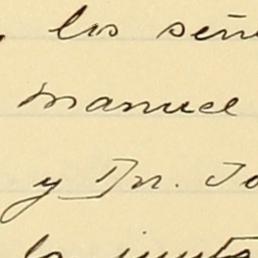 los señ
Manuel
y Dn. Jo
la junta